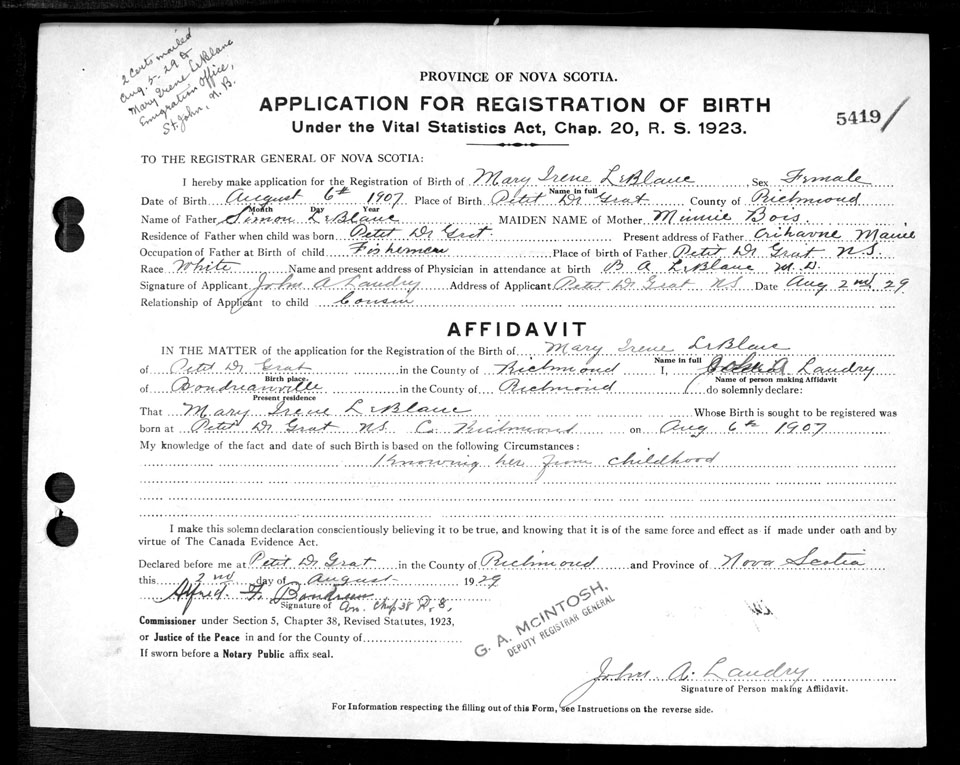 2 Certs mailed
Aug. 5-29 to
Mary Irene LeBlanc
Emigration Office,
St. John, N.B.
PROVINCE OF NOVA SCOTIA.
APPLICATION FOR REGISTRATION OF BIRTH
Under the Vital Statistics Act, Chap. 20, R. S. 1923.
5419
TO THE REGISTRAR GENERAL OF NOVA SCOTIA:
I hereby make application for the Registration of Birth of Mary Irene LeBlanc Sex Female
Name in full
Date of Birth August 6th 1907 Place of Birth Petit De Grat County of Richmond
Month Day Year
Name of Father Simon LeBlanc MAIDEN NAME of Mother Minnie Bois.
Residence of Father when child was born Petit De Grat Present address of Father Maine
Occupation of Father at Birth of child Fishemen Place of birth of Father Petit De Grat N.S.
Race White Name and present address of Physician in attendance at birth B A LeBlanc M.D.
Signature of Applicant John A Landry Address of Applicant Petit De Grat NS Date Aug 2nd 29
Relationship of Applicant to child Cousin
AFFIDAVIT
IN THE MATTER of the application for the Registration of the Birth of Mary Irene LeBlanc
Name in full
of Petit De Grat in the County of Richmond I, Landry
Birth place. Name of person making Affidavit
of Boudreauville in the County of Richmond do solemnly declare:
Present residence
That Mary Irene LeBlanc Whose Birth is sought to be registered was
born at Petit De Grat NS Co. Richmond on Aug 6th 1907
My knowledge of the fact and date of such Birth is based on the following Circumstances:
Knowing her from childhood
I make this solemn declaration conscientiously believing it to be true, and knowing that it is of the same force and effect as if made under oath and by
virtue of The Canada Evidence Act.
Declared before me at Petit De Grat in the County of Richmond and Province of Nova Scotia
this 2nd day of August 1929
Alfred F. Boudreau
Signature of Chap 38 R.S,
Commissioner under Section 5, Chapter 38, Revised Statutes, 1923,
or Justice of the Peace in and for the County of
If sworn before a Notary Public affix seal.
G. A. McINTOSH,
DEPUTY REGISTRAR GENERAL
John A. Landry
Signature of Person making Affidavit.
For Information respecting the filling out of this Form, see Instructions on the reverse side.